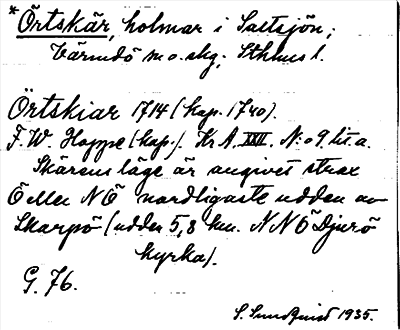 *Örtskär, holmar i Saltsjön;
Värmdö m.o.skg; Sthlms l.
Örtskiar 1714 (kap. 1740).
F.W. Hoppe (kap.). Kr.A. XXI. N:o 9 lit.a.
Skärens läge är angivet strax
Ö eller NÖ nordligaste udden av
Skarpö (udden 5,8 km. NNÖ Djurö
kyrka).
G. 76.
S. Sundquist 1935.